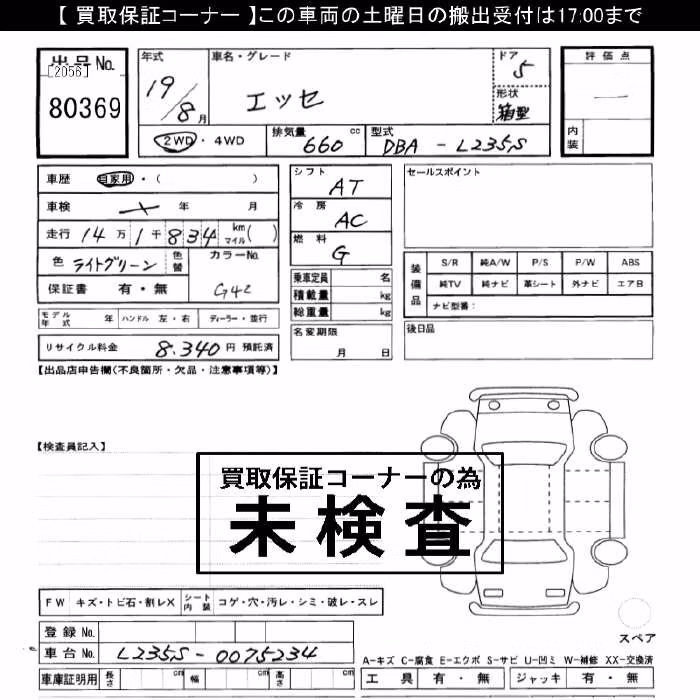 【 買取保証コーナー 】この車両の土曜日の搬出受付は17:00まで
出品No.
[2056]
80369
年式 19/8月
車名・グレード エッセ
ドア 5
形状 箱型
評価点 —
内装
2WD ・ 4WD
排気量 660 cc
型式 DBA - L235S
車歴 自家用 ・( )
車検 年 月
走行 14万1千834 km マイル( )
色 ライトグリーン 色替
カラーNo. G42
保証書 有・無
モデル年式 年 ハンドル 左・右 ディーラー・並行
リサイクル料金 8.340 円 預託済
シフト AT
冷房 AC
燃料 G
乗車定員 名
積載量 kg
総重量 kg
名変期限 月 日
セールスポイント
装備品 S/R 純A/W P/S P/W ABS
純TV 純ナビ 革シート 外ナビ エアB
ナビ型番:
後日品
【出品店申告欄(不良箇所・欠品・注意事項等)】
【検査員記入】
買取保証コーナーの為
未検査
FW キズ・トビ石・割レX シート内装 コゲ・穴・汚レ・シミ・破レ・スレ
登録 No.
車台 No. L235S-0075234
車庫証明用 長さ cm 幅 cm 高さ cm
スペア
A-キズ C-腐食 E-エクボ S-サビ U-凹ミ W-補修 XX-交換済
工具 有・無 ジャッキ 有・無